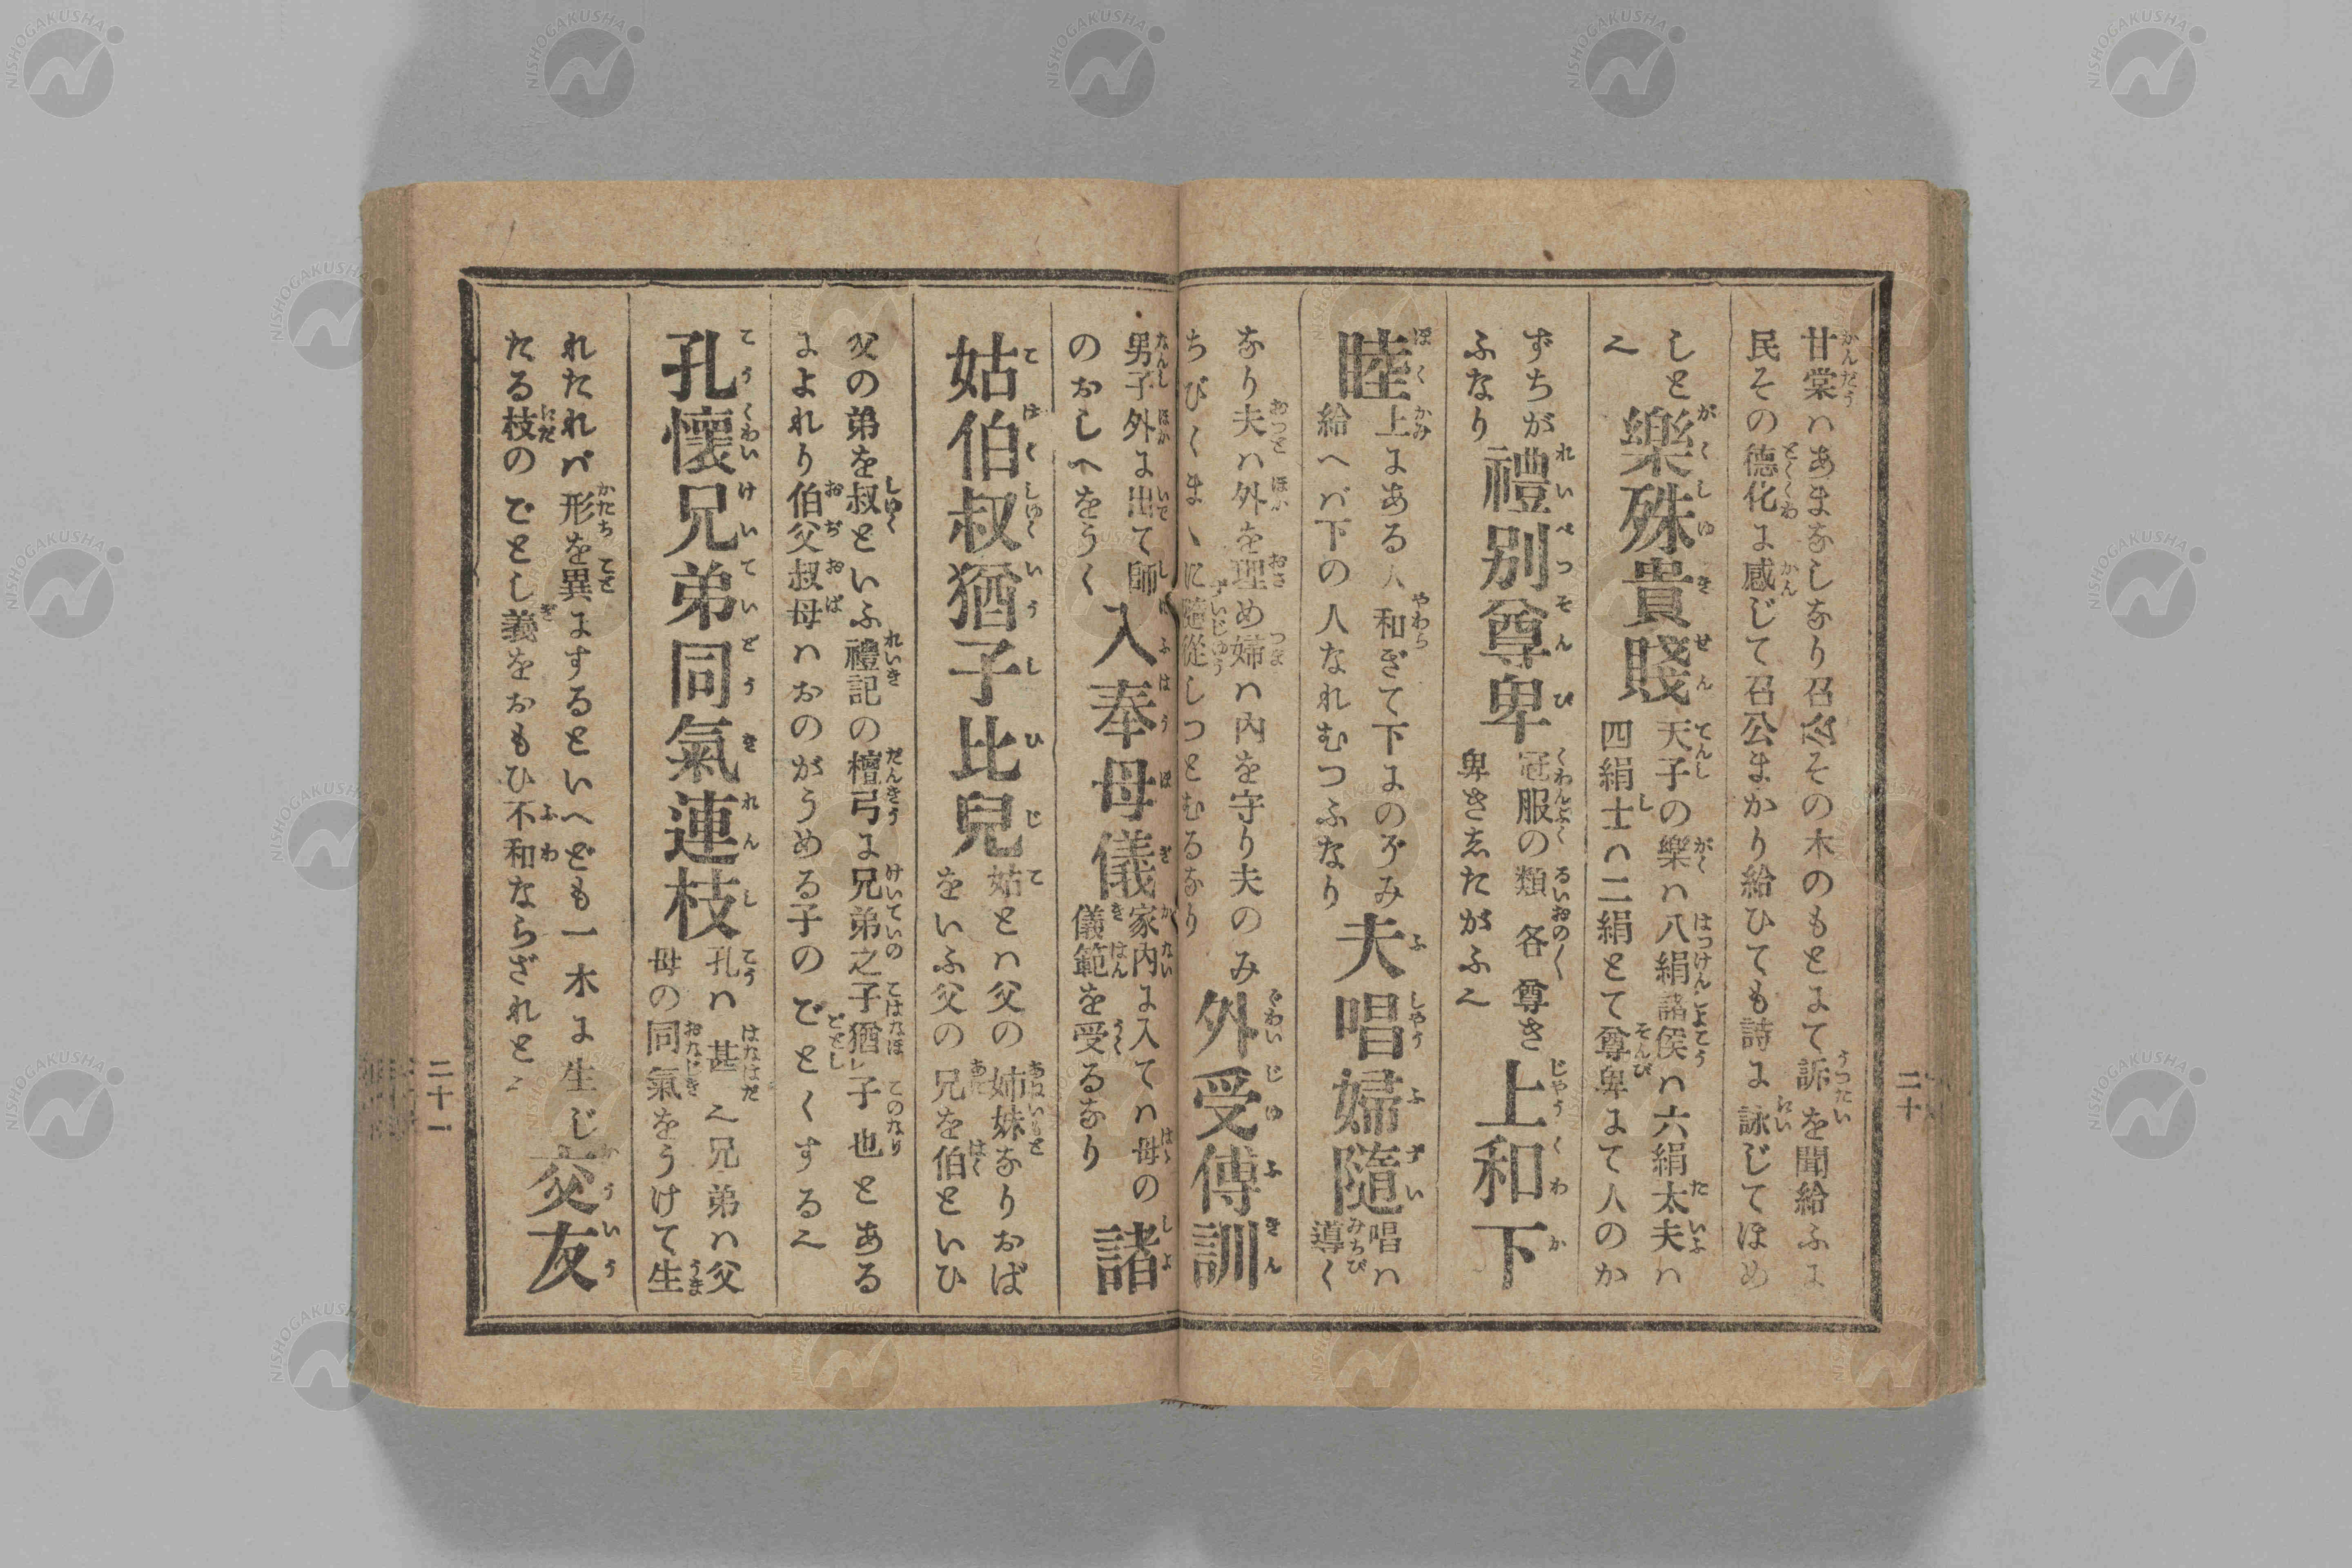 甘棠ハあまなしなり召公その木のもとにて訴を聞給ふに
民その徳化に感じて召公まかり給ひても詩に詠じてほめ
しと
也
樂殊貴賤
天子の樂ハ八絹諸侯ハ六絹太夫ハ
四絹士ハ二絹とて尊卑にて人のか
ずちが
ふなり
禮別尊卑
冠服の類各尊き
卑きゑたがふ也
上和下
睦
上にある人和ぎて下にのぞみ
給へバ下の人なれむつふなり
夫唱婦隨
唱ハ
導く
なり夫ハ外を理め婦ハ内を守り夫のみ
ちびくまゝに隨從しつとむるなり
外受傅訓
二十
男子外に出て師
のおしへをうく
入奉母儀
家内に入てハ母の
儀範を受るなり
諸
姑伯叔猶子比兒
姑とハ父の姉妹なりおば
をいふ父の兄を伯といひ
父の弟を叔といふ禮記の檀弓に兄弟之子猶子也とある
によれり伯父叔母ハおのがうめる子のごとくする也
孔懷兄弟同氣連枝
孔ハ甚也兄弟ハ父
母の同氣をうけて生
れたれバ形を異にするといへども一木に生じ
たる枝のごとし義をおもひ不和ならざれと也
交友
二十一